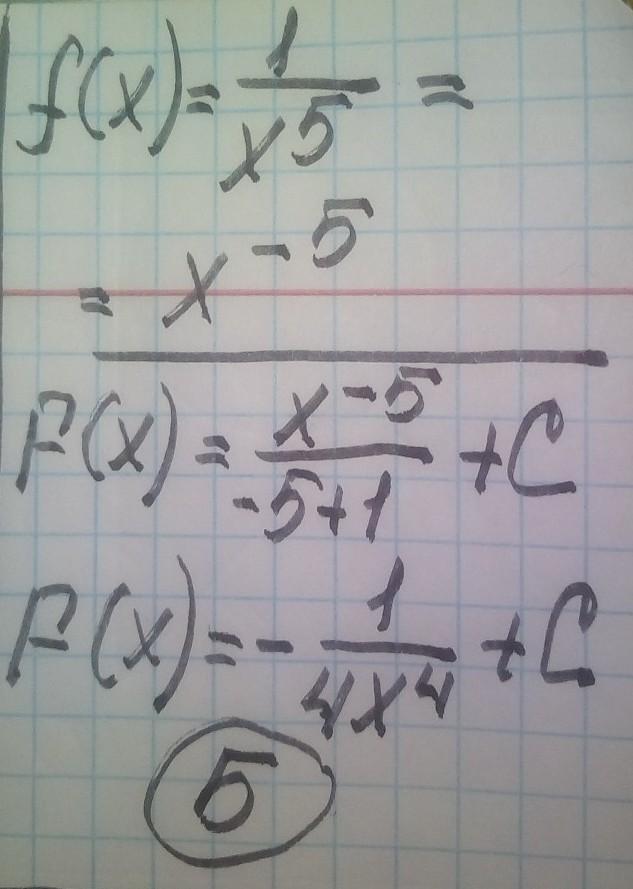 f(x) = 1/x^5 =
= x^-5
F(x) = x^-5/-5+1 + C
F(x) = - 1/4x^4 + C
5